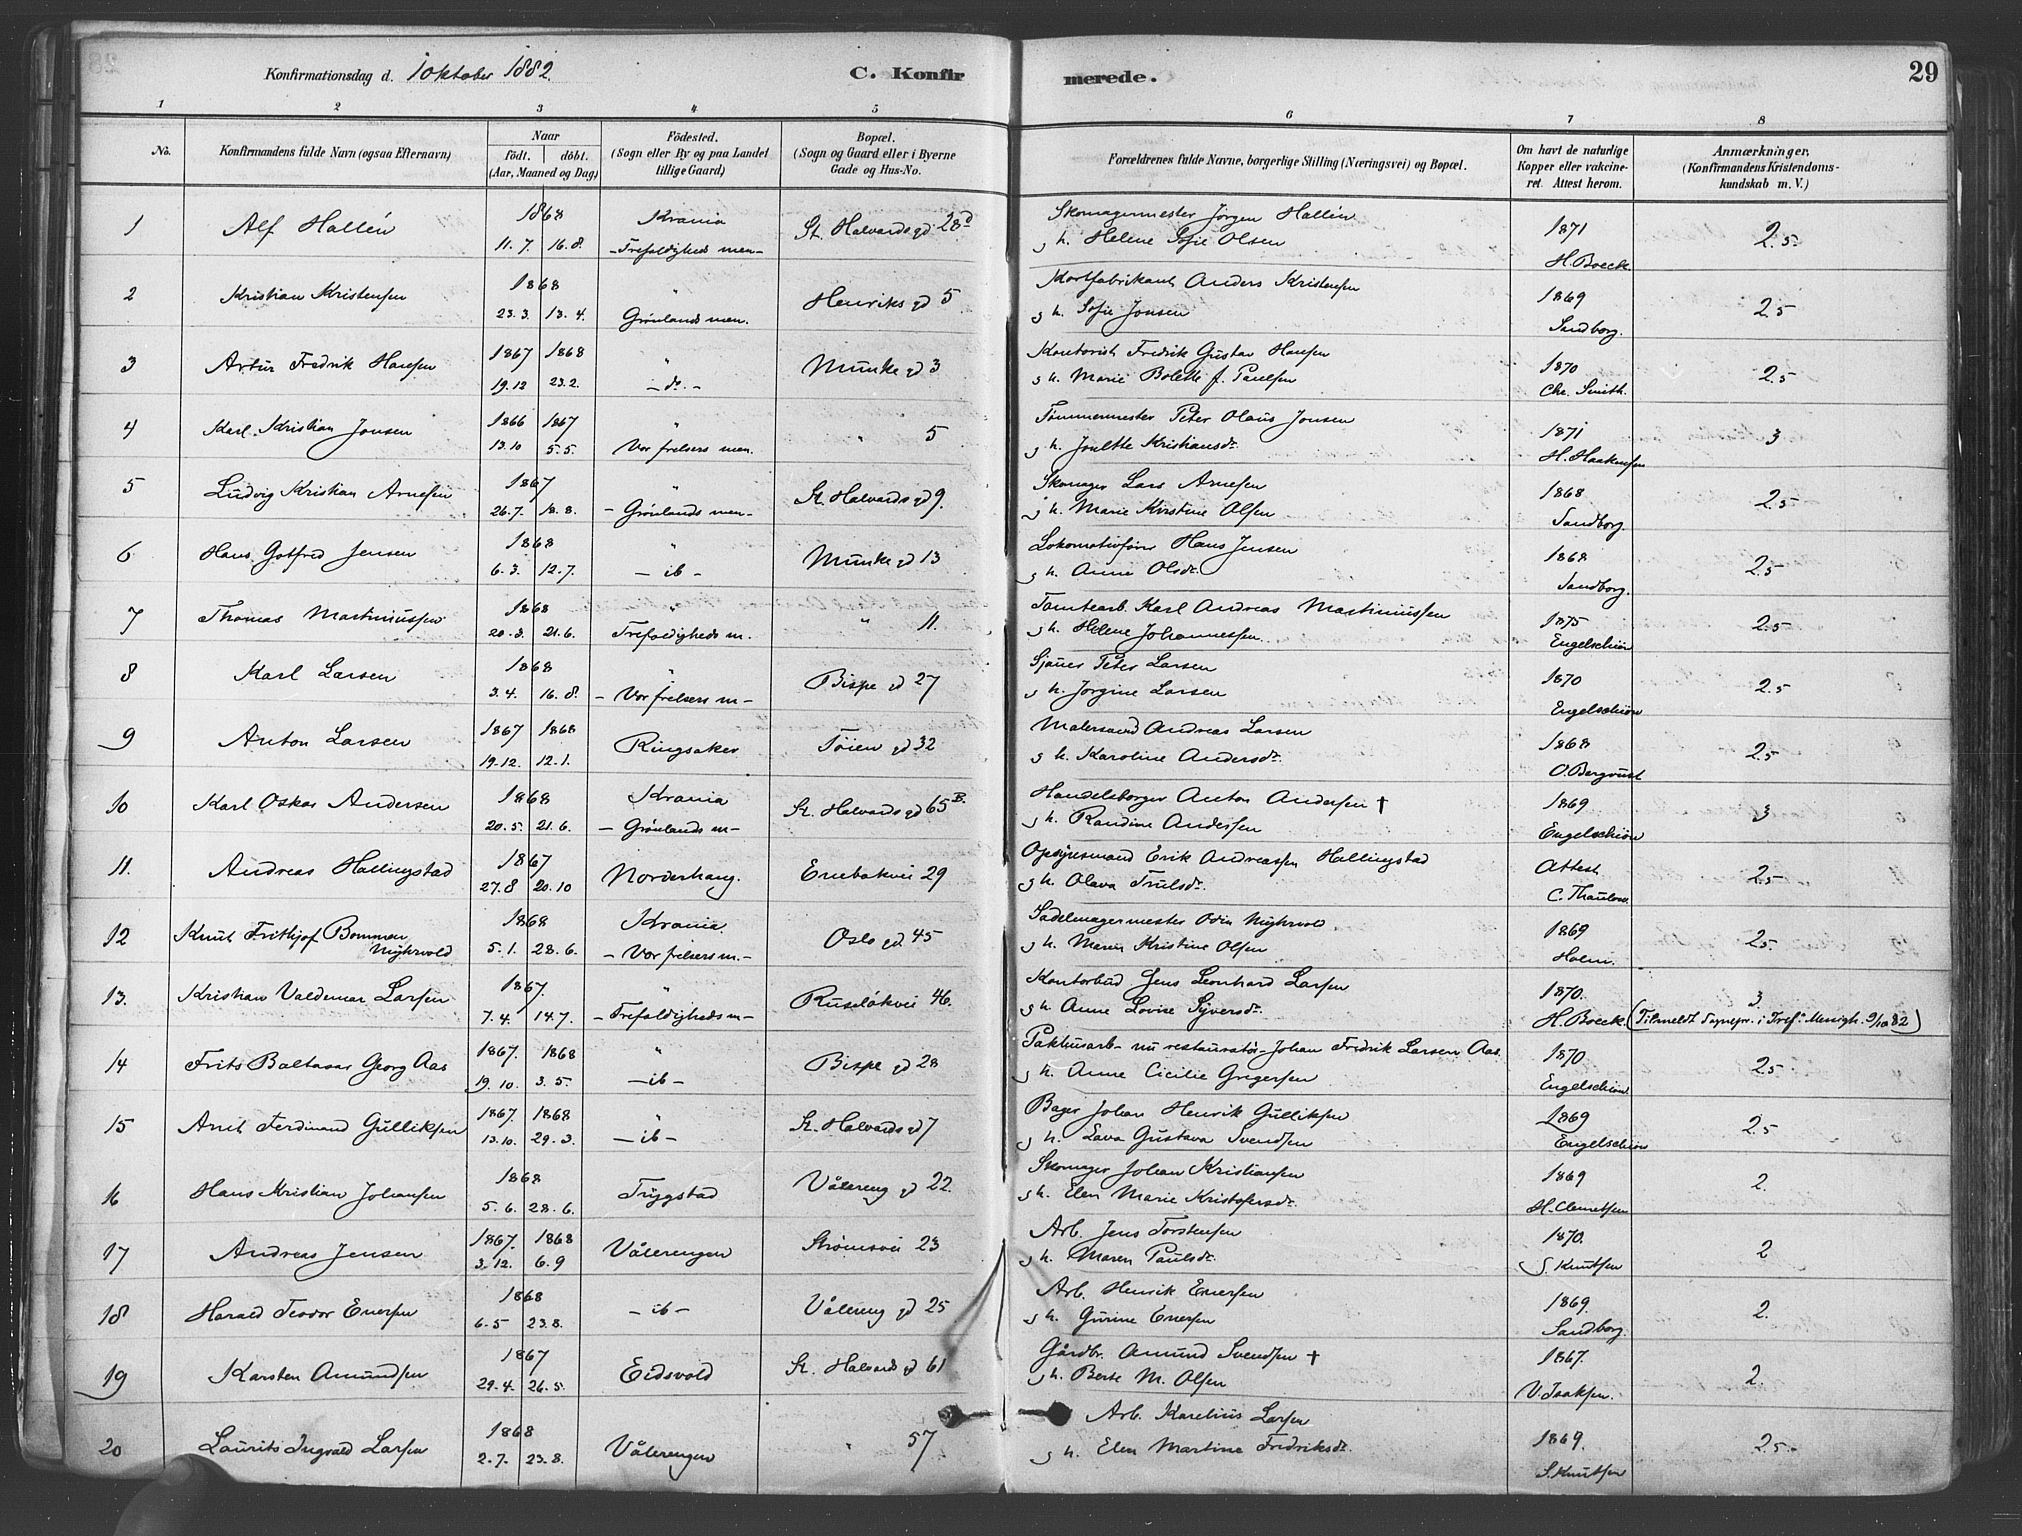 Konfirmationsdag d. 1 Oktober 1882. C. Konfirmerede. 29
1 2 3 4 5 6 7 8
No. Konfirmandens fulde Navn (ogsaa Efternavn) Naar födt. döbt. (Aar, Maaned og Dag) Födested. (Sogn eller By og paa Landet tillige Gaard) Bopæl. (Sogn og Gaard eller i Byerne Gade og Hus-No. Forældrenes fulde Navne, borgerlige Stilling (Næringsvei) og Bopæl. Om havt de naturlige Kopper eller vakcineret. Attest herom. Anmærkninger, (Konfirmandens Kristendomskundskab m. V.)
1 Alf Hallén 1868 Krania St. Halvards gd 28d Skomagermester Jörgen Hallén 1871 2.5
11. 7. 16. 8. - Trefoldigheds men - g h. Helene Sofie Olsen H. Boeck
2 Kristian Kristensen 1868 " Henriks gd 5 Kortfabrikant Anders Kristensen 1869 2.5
23. 3. 13. 4. Grönlands men. g h. Sofie Jonsen Sandborg.
3 Artur Fredrik Hansen 1867 1868 " Munke gd 3 Kontorist Fredrik Gustav Hansen 1870 2.5
19. 12 23. 2. - do. - g h. Marie Bolette f. Paulsen Chr. Smith.
4 Karl Kristian Jonsen 1866 1867 " " 5 Tömmermester Peter Olaus Jonsen 1871 3
13. 10 5. 5. Vor frelsers men. g h. Kristiansdr. H. Haakensen
5 Ludvig Kristian Arnesen 1867 " St. Halvards gd 9. Skomager Lars Arnesen 1868 2.5
26. 7. 18. 8. - Grönlands men - g h. Marie Kirstine Olsen Sandborg.
6 Hans Gotfred Jensen 1868 " Munke gd 13 Lokomotivförer Hans Jensen 1868 2.5
6. 3. 12. 7. - ib - g h. Anne Olsdr. Sandborg.
7 Thomas Martiniussen 1868 " " 11. Tomtearb. Karl Andreas Martiniussen 1875 2.5
20. 3. 21. 6. Trefoldigheds m. g h. Helene Johannessen. Engelschiön
8 Karl Larsen 1868 " Bispe gd 27 Sjouer Peter Larsen 1870 2.5
3. 4. 16. 8. - Vor frelsers m - g h. Jörgine Larsen Engelschiön
9 Anton Larsen 1867 1868 Ringsaker Töien gd 32 Malersvend Andreas Larsen 1868 2.5
19. 12. 12. 1. g h. Karoline Andersdr. O. Bergvist
10 Karl Oskar Andersen 1868 Krania St. Halvards gd 65B. Handelsborger Anton Andersen † 1869 3
20. 5. 21. 6. - Grönlands m - g h. Randine Andersen Engelschiön
11. Andreas Hallingstad 1867 Norderhaug. Enebakvei 29 Opsynsmand Erik Andreassen Hallingstad Attest 2.5
27. 8 20. 10 g h. Olava Trulsdr. C. Thaulow
12 Knut Frithjof Bommen 1868 Krania. Oslo gd 45 Sadelmagermester Odin Myhrvold 1869 2.5
Myhrvold 5. 1. 28. 6. - Vor frelsers m. - g h. Maren Kristine Olsen Holm.
13. Kristian Valdemar Larsen 1867. " Ruselökvei 46. Kontorbud Jens Leonhard Larsen 1870. 3
7. 4. 14. 7. - Trefoldigheds m - g h. Anne Lovise Syversdr. H. Boeck (Tilmeldt Sognepr. i Tref. Menigh. 9/10 82)
14 Frits Baltasar Georg Aas 1867. 1868 " Bispe gd 28 Pakhusarb - nu restauratör - Johan Fredrik Larsen Aas. 1870 2.5
19. 10. 3. 5. - ib - g h. Anne Cicilie Gregersen Engelschiön
15 Arnt Ferdinand Gulliksen 1867. 1868 " St. Halvards gd 7 Bager Johan Henrik Gulliksen 1869 2.5
13. 10. 29. 3. - ib - g h. Lava Gustava Svendsen Engelschiön
16 Hans Kristian Johansen 1868 Trygstad Våløreng gd 22. Skomager Johan Kristiansen 1869 2.
5. 6. 28. 6. g h. Elen Marie Kristofersdr. H. Clemetsen
17 Andreas Jensen 1867. 1868 Vålerengen Strömsvei 23 Arb. Jens Torstensen 1870. 2
3. 12. 6. 9 g h. Maren Paulsdr. S. Knutsen
18 Harald Teodor Enersen 1868 - ib - Vålereng gd 25 Arb. Henrik Enersen 1869. 2.
6. 5 23. 8. g h. Gurine Enersen Sandborg.
19 Karsten Amundsen 1867 Eidsvold St. Halvards gd 61 Gårdbr. Amund Svendsen † 1867. 2.
29. 4. 26. 5. g h. Berte M. Olsen V. Isaksen.
20 Laurits Ingvald Larsen 1868 Vålerengen " 57 Arb. Karelius Larsen 1869. 2.5
2. 7. 23. 8. g h. Elen Martine Fredriksdr. S. Knutsen